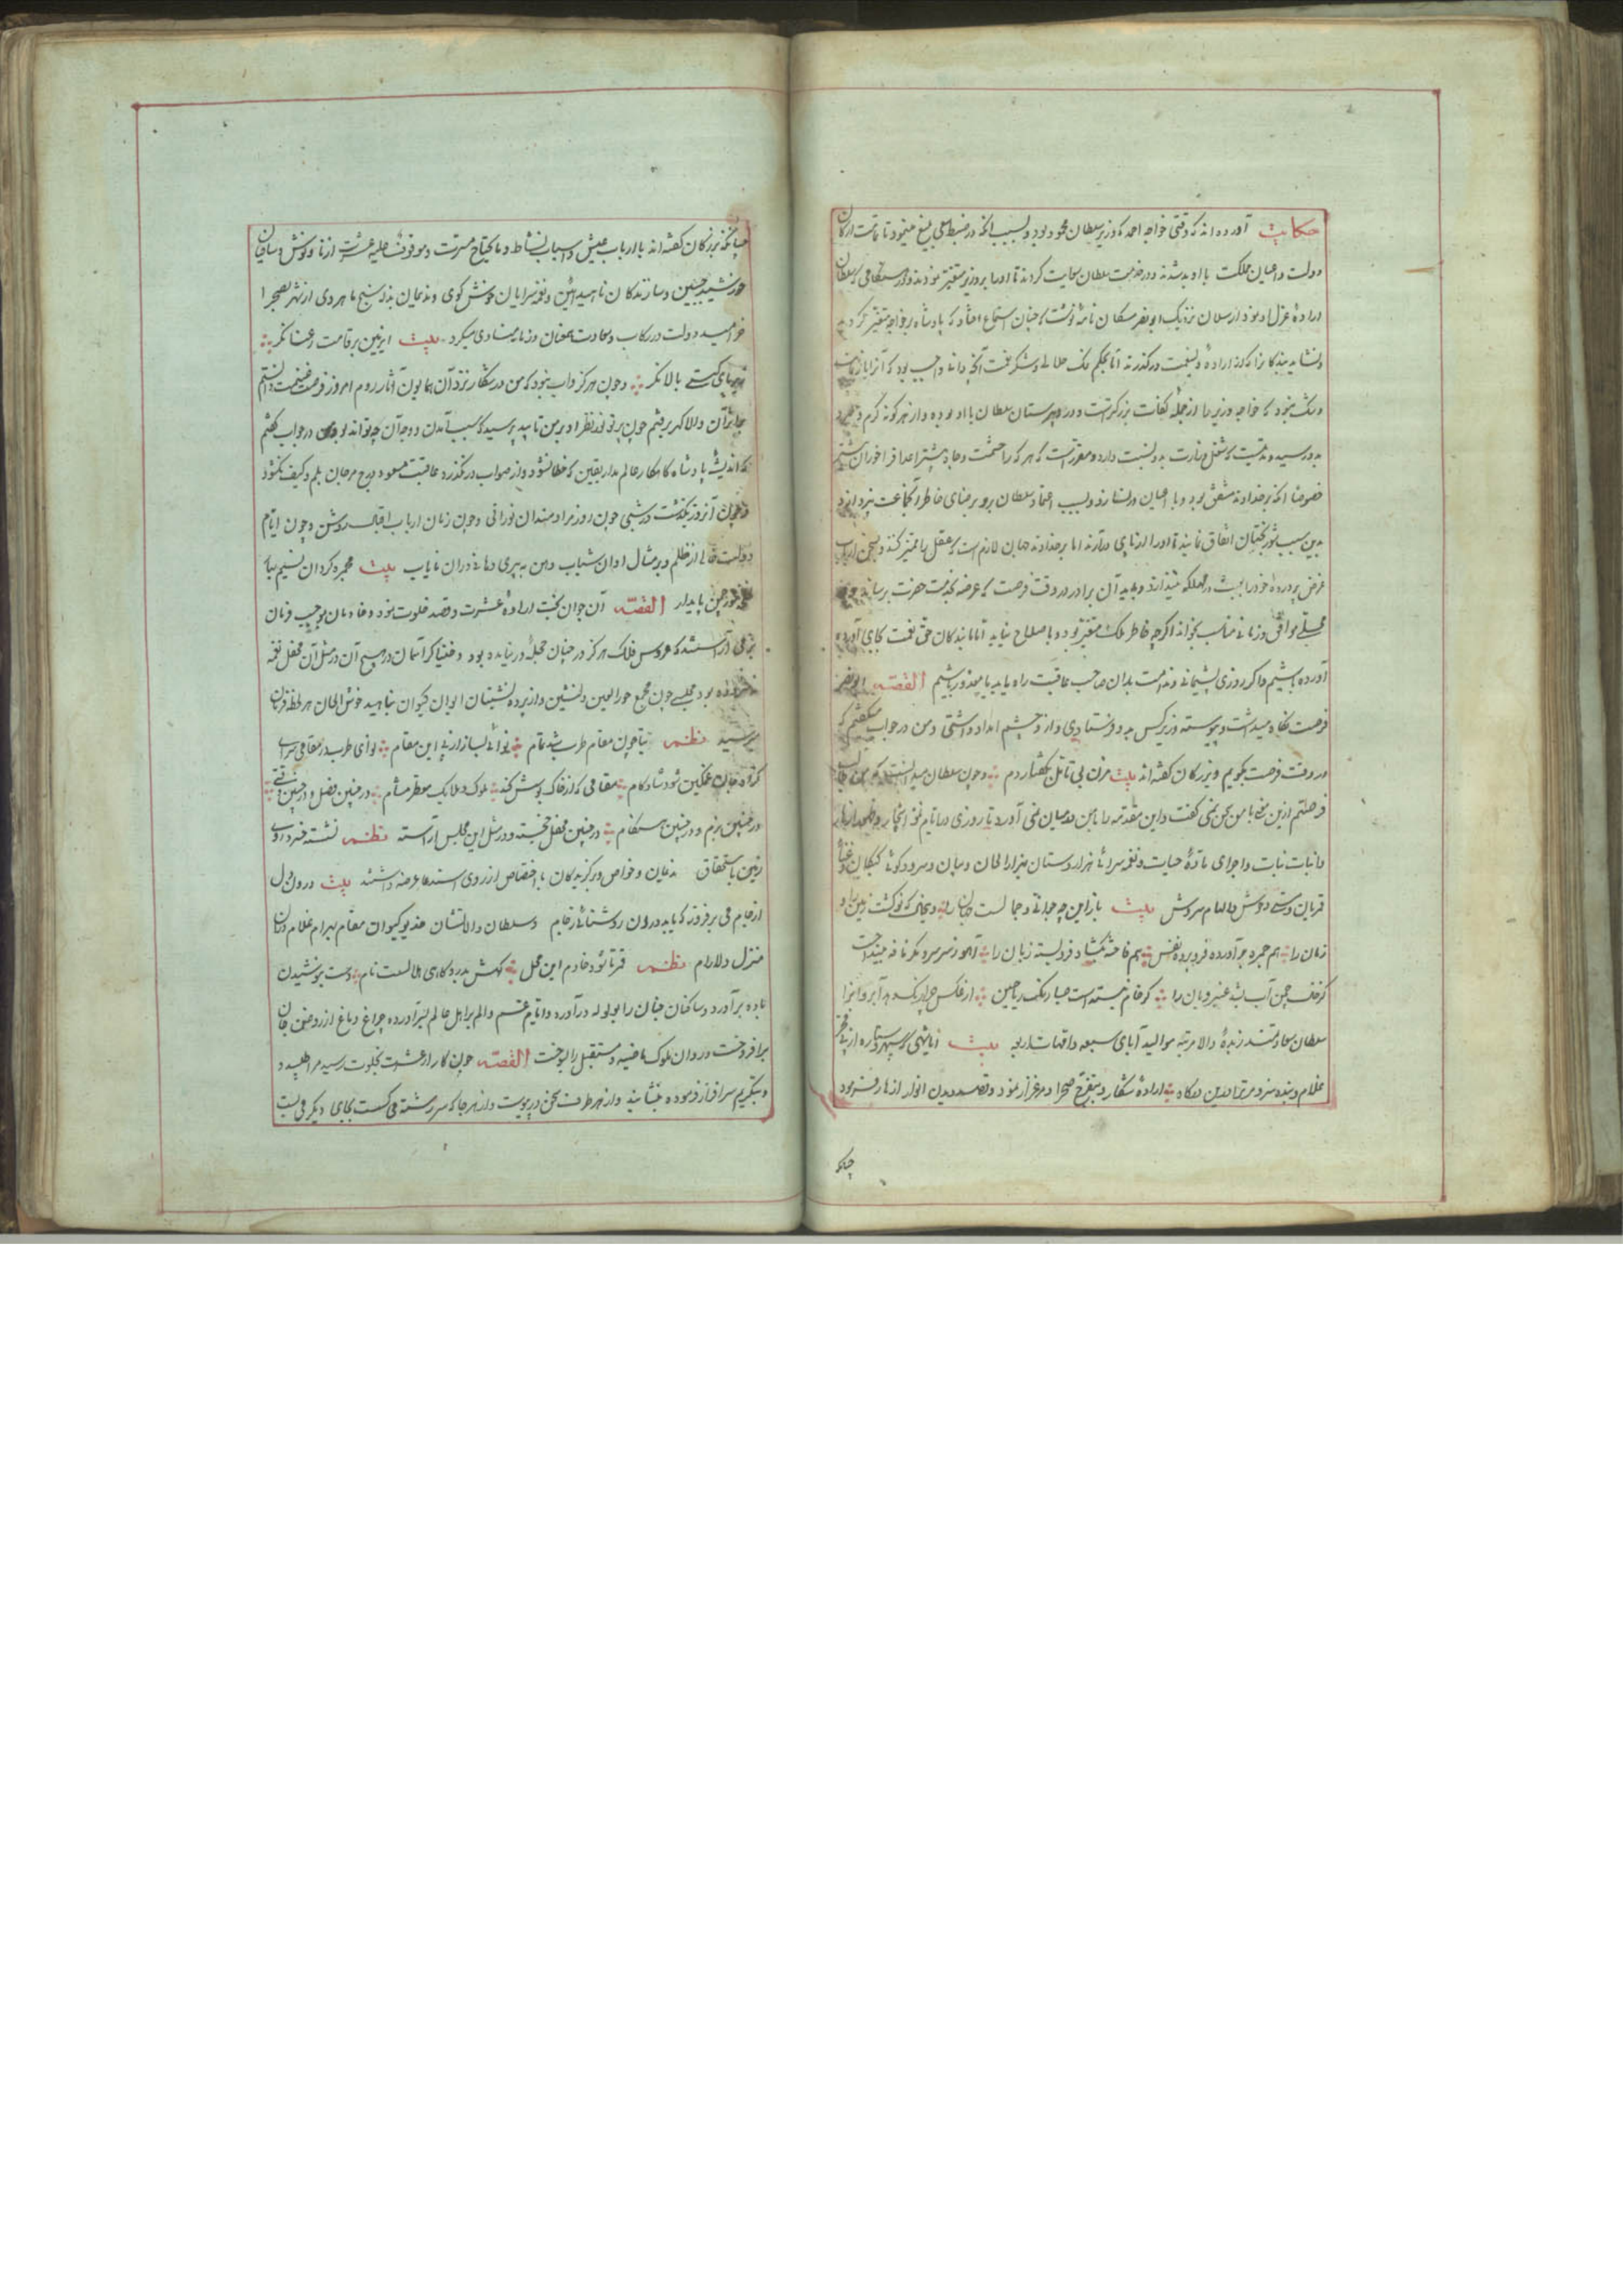 حکایت آورده اند که وقتی خواجه احمد که وزیر سلطان محمود بود و بسبب آنکه در ضبط سعی بلیغ مینمود تا تمامت ارکان
دولت و اعیان مملکت با او بد شدند و در خدمت سلطان سعایت کردند تا او را بر وزیر متغیر نمودند و در هنگامی که سلطان
ارادهٔ عزل او نمود ارسلان نزدیک ابو نصر مشکان نامهٔ نوشت که چنان استماع افتاد که پادشاه بر خواجه متغیر گردید
و نشاید بندگانرا که از ارادهٔ ولینعمت درگذرند اما بحکم نمک حلالی و شکر نعمت آنچه دانند واجب بود که آنرا باز نمایند
و شک نبود که خواجه وزیر ما از جمله کفات بزرگتر است و در دبیرستان سلطان با او بوده و از هر گونه گرم و سرد
بدو رسیده و مدتیست که شغل وزارت بدو نسبت دارد و مقرر است که هر که را حشمت و جاه بیشتر اعدا فراخور آن بیشتر
خصوصا آنکه بر خداوند مشفق بود و با اعیان در نسازد و بسبب اعتماد سلطان بر وی بر رضای خاطر آنجماعت نپردازد
بدین سبب شوربختان اتفاق نمایند تا او را از پای درآرند اما بر خداوند جهان لازم است که عقل را ممیز کند و بسخن ارباب
غرض پرورده خود را بعبث در مهلکه نیندازد و باید آن برادر در وقت فرصت که عرضه بخدمت حضرت برساند و
محلی موافق و زمانی مناسب بخواند اگرچه خاطر ملک متغیر بود و با صلاح نیاید اما ما بندگان حق نعمت بجای آورده
آورده باشیم و اگر روزی پشیمانی و ندامت بدان صاحب عاقبت راه یابد ما معذور باشیم القصه ابو نصر
فرصت نگاه میداشت و پیوسته وزیر کس بدو فرستادی و ازو چشم امداد داشتی و من در جواب میگفتم که
در وقت فرصت بگویم و بزرگان گفته اند بیت مزن بی تامل بگفتار دم و چون سلطان میدانست که من طالب
فرصتم ازین نوع با من سخن نمی گفت و این مقدمه را با من در میان نمی آورد تا روزی در ایام نمو اشجار و ظهور ازهار
و انبات نبات و اجرای مادهٔ حیات و نغمه سرائی هزار دستان هزار الحان و سرود گوئی کبکان و غنای
قمریان دوستی دوش و الهام سروش بیت باز این چه جوانی و جمالست جهان را وین حال که نو گشت زمین را و
زمان را هم جمره برآورده فرو برده نفس هم فاخته بگشاد فرو بسته زبان را آهو ز سر سرو مگر نافه بینداخت
کز خاک چمن آب بشد عنبر و بان را گر خام نبسته است صبا رنگ ریاحین از عکس چرا رنگ دهد آب روانرا
سلطان سعادتمند زبدهٔ والا مرتبه موالید آبای سبعه و امهات اربعه بیت آنشهی که سپهر و ستاره از پی فخر
غلام و بنده سزد مر ترا درین درگاه ارادهٔ شکار و بتفرج صحرا و مرغزار نمود و قصد دیدن انوار ازهار فرمود
چنانکه
چنانکه بزرگان گفته اند با ارباب عیش و اسباب نشاط و مایحتاج مسرت و موقوف علیه عشرت از نای و نوش و ساقیان
خورشید جبین و سازندگان ناهید آئین و نغمه سرایان خوش گوی و ندیمان بذله سنج ماهروی از شهر بصحرا
خرامید دولت در رکاب و سعادت همعنان و زمانه منادی میکرد بیت ای زمین بر قامت رعنا نگر
زیر پای کیستی بالا نگر و چون هرگز داب نبود که من در شکار نزد آن همایون آثار روم امروز فرصت غنیمت دانستم
بنزد آن والا گهر رفتم چون پرتو نور نظر او بر من تابید پرسید که سبب آمدن و وجه آن چه تواند بود در جواب گفتم
که اندیشهٔ پادشاه کامکار عالم مدار یقین که خطا نشود و از صواب در نگذرد عاقبت مسعود درج مرجان بلم و کیف نگشود
و چون آنروز بگذشت در شبی چون روز مرادمندان نورانی و چون زمان ارباب اقبال روشن و چون ایام
دولت خالی از ظلم و بر مثال اوان شباب و من به پیری و مانی در آن نایاب بیت مجمره گردان نسیم بهار
چمن پایدار القصه آن جوان بخت ارادهٔ عشرت و قصد خلوت نمود و خادمان بموجب فرمان
بزمی آراستند که عروس فلک هرگز در چنان حجلهٔ در نیامده بود و خنیاگر آسمان در هیچ آن در مثل آن محفل نغمه
نسروده بود مجلسی چون مجمع حور العین دلنشین و از پرده نشینان ایوان کیوان بناهید خوش الحان هر لحظه فرمان
میرسید نظم بیا چون مقام طرب شد تمام نوائی بساز از پی این مقام نوای طرب در مقامی سرای
کزو جان غمگین شود شادکام مقامی که از خاک بوش کند ملوک و ملایک معطر مشام در چنین فصل و در چنین وقتی
در چنین بزم و در چنین هنگام در چنین محفل خجسته و در مثل این مجلس آراسته نظم نشسته خسرو روی
زمین باستحقاق ندیمان و خواص و برگزیدگان باختصاص از روی استدعا عرضه داشتند بیت درون دل
از جام می برفروز که باید درون روشنائی ز جام و سلطان والانشان خدیو کیوان مقام بهرام غلام در آن
منزل دلارام نظم قمر تا بود خادم این محل کهش بدر و گاهی هلالست نام دست بنوشیدن
باده برآورد و ساکنان جنان را بولوله درآورد و ایام غم و الم بر اهل عالم بسرآورده چراغ دماغ از روغن جان
برافروخت و روان ملوک ماضیه و مستقبل را بسوخت القصه چون کار از عشرت بخلوت رسید مرا طلبید و
و بتکریم سرافراز فرموده بنشانید و از هر طرف سخن در پیوست و از هر جا که سررشته می گسست بجای دیگر می بست